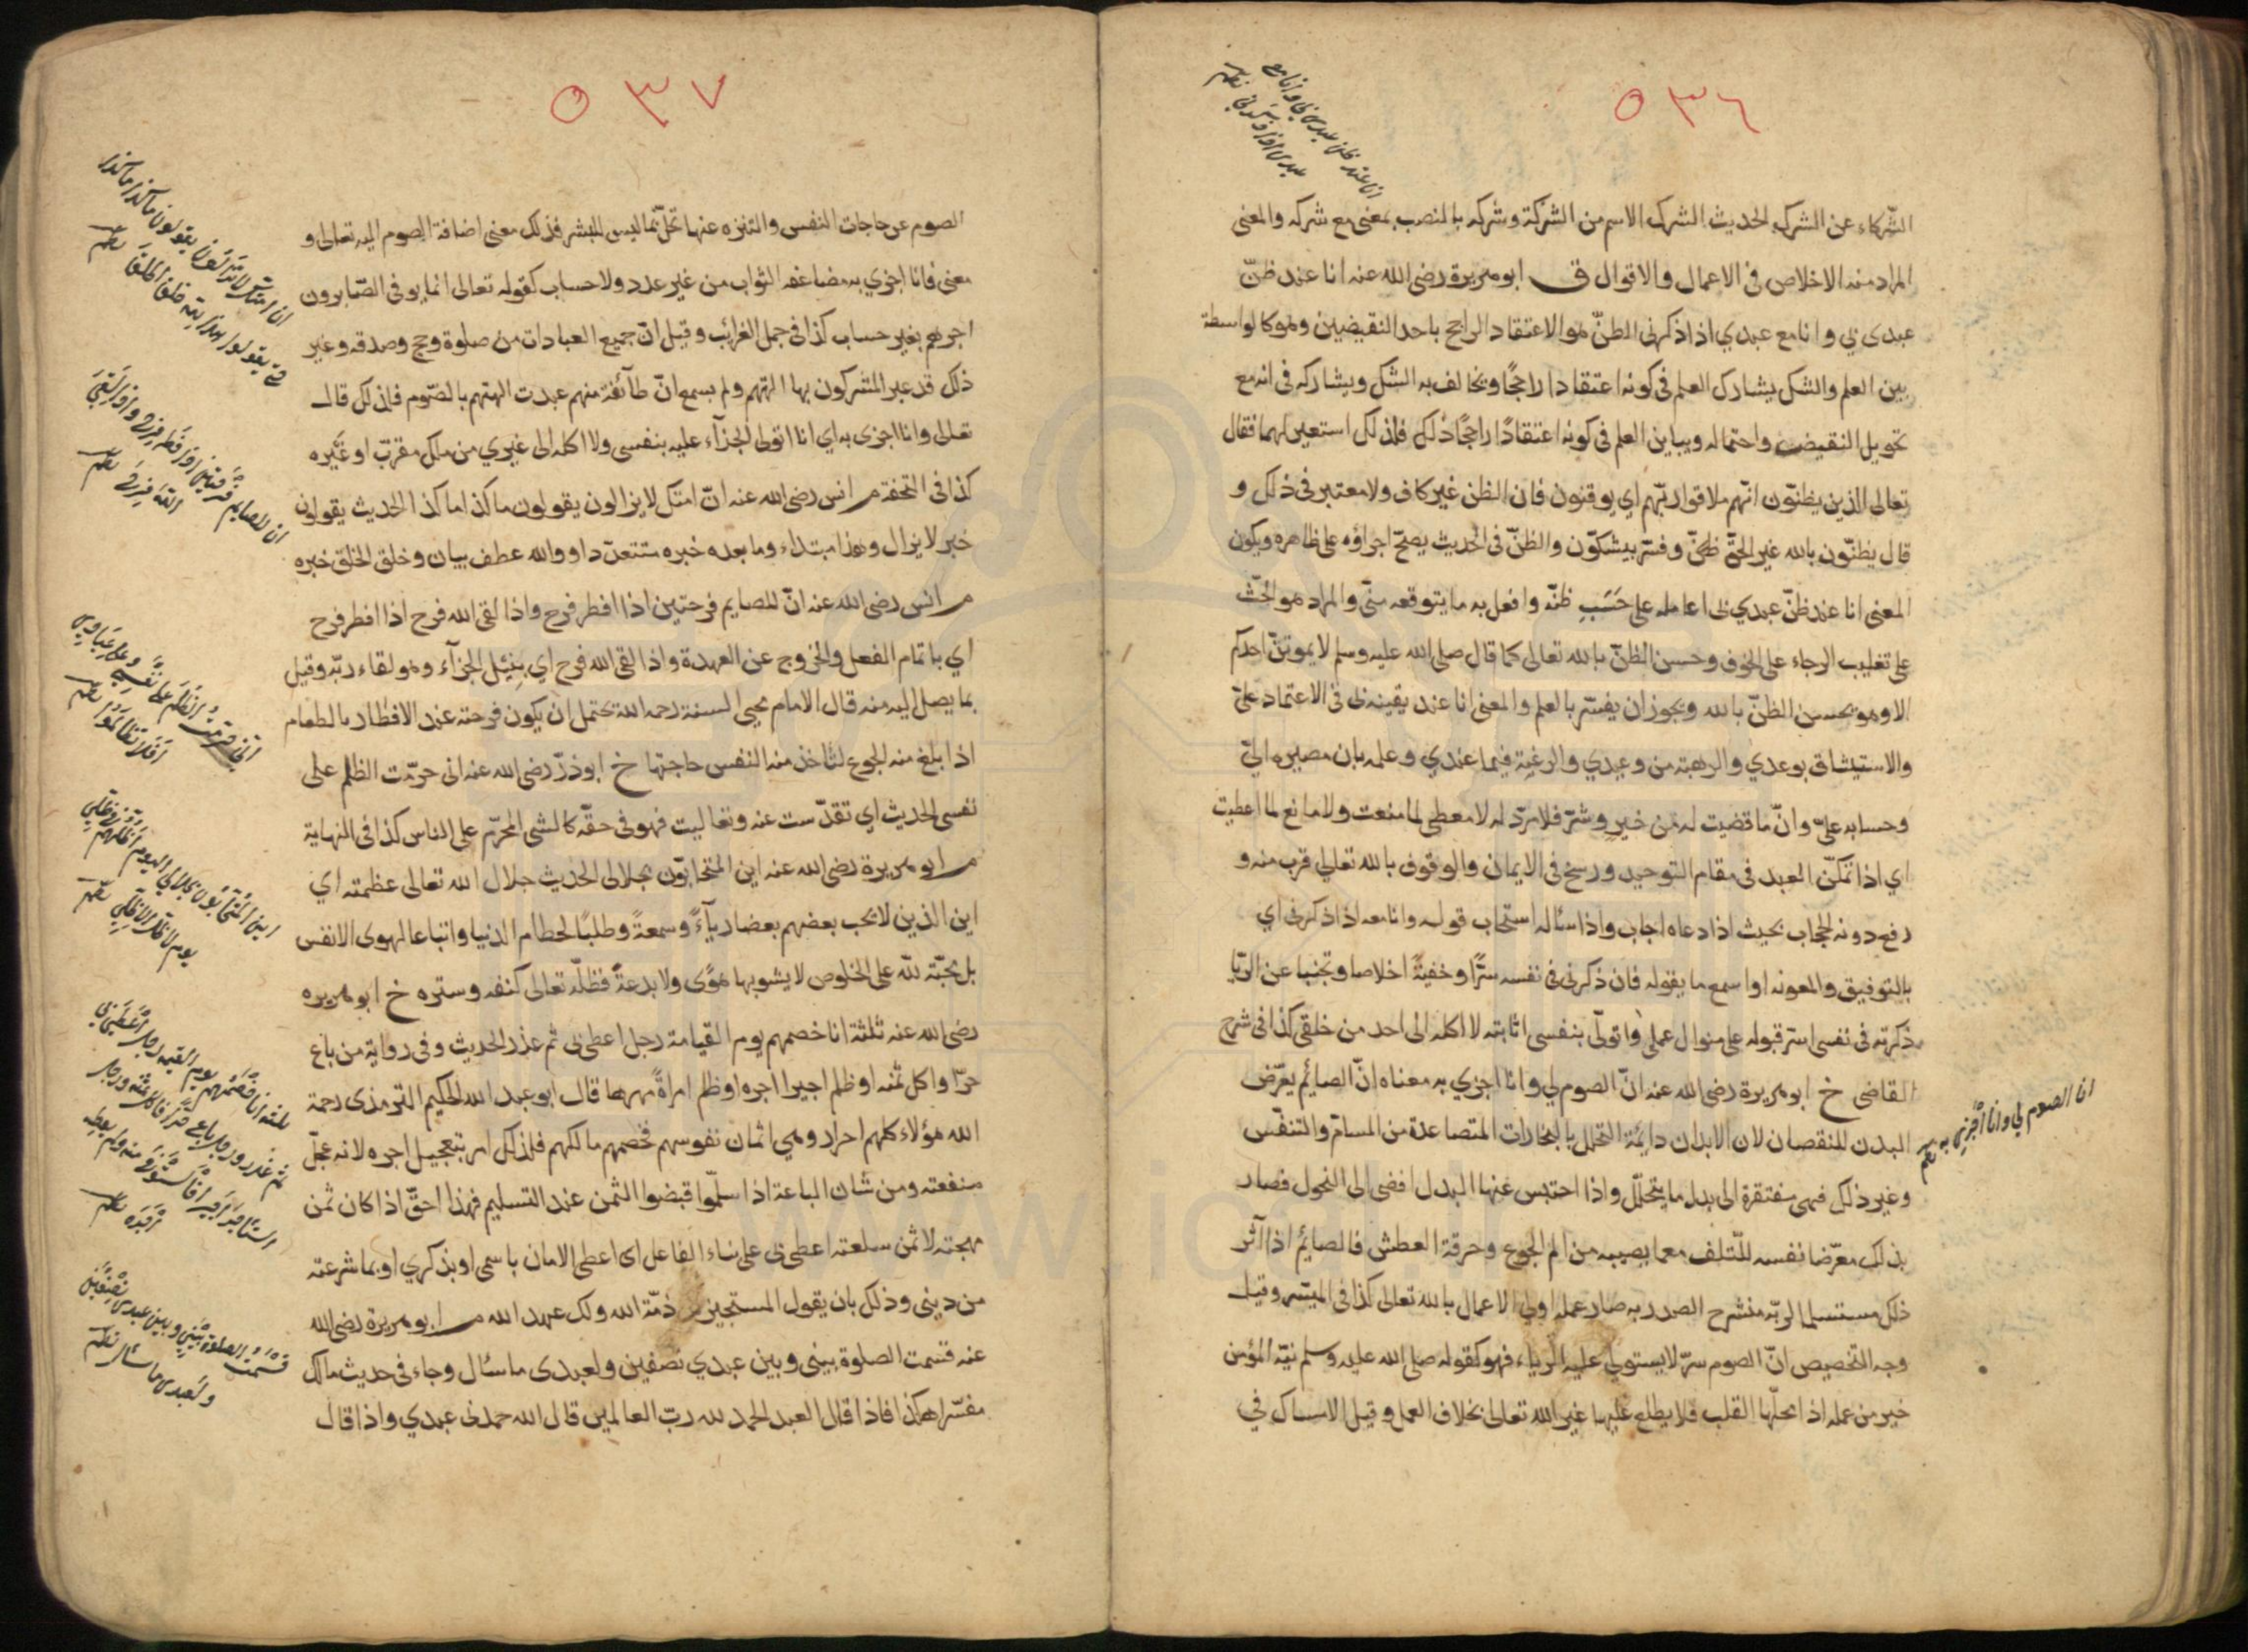 ٥٣٦
انا عند ظن عبدي بي وانا مع
عبدي اذا ذكرني
الشركاء عن الشرك الحديث الشرك الاسم من الشركة وشركه بالنصب بمعنى مع شركه والمعنى
المراد منه الاخلاص في الاعمال والاقوال ق ابو هريرة رضى الله عنه انا عند ظنّ
عبدى بي وانا مع عبدي اذا ذكرني الظنّ هو الاعتقاد الراجح باحد النقيضين وهو كالواسطة
بين العلم والشك يشارك العلم في كونه اعتقادا راجحًا ويخالف به الشك ويشاركه في انه مع
تحويل النقيض واحتماله ويباين العلم في كونه اعتقادًا راجحًا ذلك فلذلك استعير لهما فقال
تعالى الذين يظنّون انّهم ملاقوا ربّهم اي يوقنون فان الظن غير كاف ولا معتبر في ذلك و
قال يظنّون بالله غير الحقّ ظنّ وفسّر بيشكّون والظنّ في الحديث يصحّ اجراؤه على ظاهره ويكون
المعنى انا عند ظنّ عبدي بي اعامله على حَسَبِ ظنّه وافعل به ما يتوقعه منّي والمراد هو الحثّ
على تغليب الرجاء على الخوف وحسن الظنّ بالله تعالى كما قال صلى الله عليه وسلم لا يموتنّ احدكم
الا وهو يحسن الظنّ بالله ويجوز ان يفسّر بالعلم والمعنى انا عند يقينه بي في الاعتماد عليّ
والاستيثاق بوعدي والرهبة من وعيدي والرغبة فيما عندي وعلمه بان مصيره اليّ
وحسابه عليّ وانّ ما قضيت له من خيرٍ وشرّ فلا مردّ له لا معطى لما منعت ولا مانع لما اعطيت
اي اذا تمكّن العبد في مقام التوحيد ورسخ في الايمان والوقوف بالله تعالى قرب منه و
رفع دونه الحجاب بحيث اذا دعاه اجاب واذا سئاله استجاب قوله وانا معه اذا ذكرني اي
بالتوفيق والمعونه او اسمع ما يقوله فان ذكرني في نفسه سرًّا وخفيةً اخلاصا وتجنبا عن الريّا
ذكرته في نفسي اسرّ قبوله على منوال عمله واتولّى بنفسي اثابته لا اكله الى احد من خلقي كذا في شرح
القاضى خ ابو هريرة رضى الله عنه انّ الصوم لي وانا اجزي به معناه انّ الصائم يعرّض
ان الصوم لي وانا اَجْزِي به
البدن للنقصان لان الابدان دايمة التحلل بالبخارات المتصاعدة من المسامّ والتنفّس
وغير ذلك فهى مفتقرة الى بدل ما يتحلّل واذا احتبس عنها البدل افضى الى النحول فصار
بذلك معرّضا نفسه للتّلف مع ما يصيبه من الم الجوع وحرقة العطش فالصائم اذا آثر
ذلك مستسلما لربّه منشرح الصدر به صار عمله اولى الاعمال بالله تعالى كذا في الميسّر وقيل
وجه التخصيص انّ الصوم سرّ لا يستولي عليه الرياء فهو كقوله صلى الله عليه وسلم نيّة المؤمن
خير من عمله اذ محلّها القلب فلا يطلع عليها غير الله تعالى بخلاف العمل وقيل الامساك في
٥٣٧
الصوم عن حاجات النفس والتنزه عنها تحلّ بما ليس للبشر فذلك معنى اضافة الصوم اليه تعالى و
معنى فانا اجزي به مضاعفه الثواب من غير عدد ولا حساب كقوله تعالى انما يوفى الصّابرون
اجرهم بغير حساب كذا في جمل الغرائب وقيل انّ جميع العبادات من صلوة وحج وصدقه وغير
ذلك قد عبد المشركون بها الهتهم ولم يسمع انّ طآئفة منهم عبدت الهتهم بالصّوم فلذلك قال
تعالى وانا اجزى به اي انا اتولى الجزآء عليه بنفسى ولا اكله الى غيري من ملك مقربّ او غَيره
كذا في التحفة م انس رضى الله عنه انّ امتك لا يزالون يقولون ما كذا ما كذا الحديث يقولون
خبر لا يزال وهذا مبتداء وما بعده خبره والله عطف بيان وخلق الخلق خبره
م انس رضى الله عنه انّ للصايم فرحتين اذا افطر فرح واذا لقى الله فرح اذا افطر فرح
اي باتمام الفعل والخروج عن العهدة واذا لقى الله فرح اي بنَيْل الجزآء وهو لقاء ربّه وقيل
بما يصل اليه منه قال الامام محيى السنة رحمه الله يحتمل ان يكون فرحته عند الافطار بالطعام
اذا بلغ منه الجوع لتاخذ منه النفس حاجتها خ ابو ذرّ رضى الله عنه انى حرّمت الظلم على
نفسى الحديث اي تقدّست عنه وتعاليت فهو في حقّه كالشى المحرّم على الناس كذا في النهاية
م ابو هريرة رضى الله عنه اين المتحابّون بجلالى الحديث جلال الله تعالى عظمته اي
اين الذين لا يحب بعضهم بعضا ريآءً وسمعةً وطلبًا لحطام الدنيا واتباعا لهوى الانفس
بل يحبّه للّه على الخلوص لا يشوبها هوًى ولا بدعةً فظلّه تعالى كنفه وستره خ ابو هريره
رضى الله عنه ثلثة انا خصمهم يوم القيامة رجل اعطى بى ثم غدر الحديث وفي رواية من باع
حرّا واكل ثمنه او ظلم اجيرا اجره او ظلم امراةً مهرها قال ابو عبد الله الحكيم الترمذى رحمة
الله هؤلاء كلهم احرار وهى اثمان نفوسهم فخصمهم مالكهم فلذلك امر بتعجيل اجره لانه عجّل
منفعته ومن شان الباعة اذا سلّموا قبضوا الثمن عند التسليم فهذا احقّ اذا كان ثمن
مهجته لا ثمن سلعته اعطى بى على بناء الفاعل اى اعطى الامان باسمى او بذكري او بما شرعته
من دينى وذلك بان يقول المستجير ذمّة الله ولك عهد الله م ابو هريرة رضى الله
عنه قسمت الصلوة بينى وبين عبدي نصفين ولعبدى ما سئال وجاء في حديث مالك
مفسّرا هكذا فاذا قال العبد الحمد لله ربّ العالمين قال الله حمدنى عبدي واذا قال
ان امتك لا يزالون يقولون ما كذا ما كذا
حتى يقولوا هذا الله خلق الخلق
ان للصايم فرحتين اذا افطر فرح واذا لقي
الله فرح
انى حرمت الظلم على نفسى وعلى عبادي
افلا تظالموا
اين المتحابون بجلالي اليوم اظلهم في ظلي
يوم لا ظل الا ظلي
ثلثة انا خصمهم يوم القيمة رجل اعطى بي
ثم غدر ورجل باع حرا فاكل ثمنه ورجل
استاجر اجيرا فاستوفى منه ولم يعطه
اجره
قسمت الصلوة بيني وبين عبدي نصفين
ولعبدى ما سئال